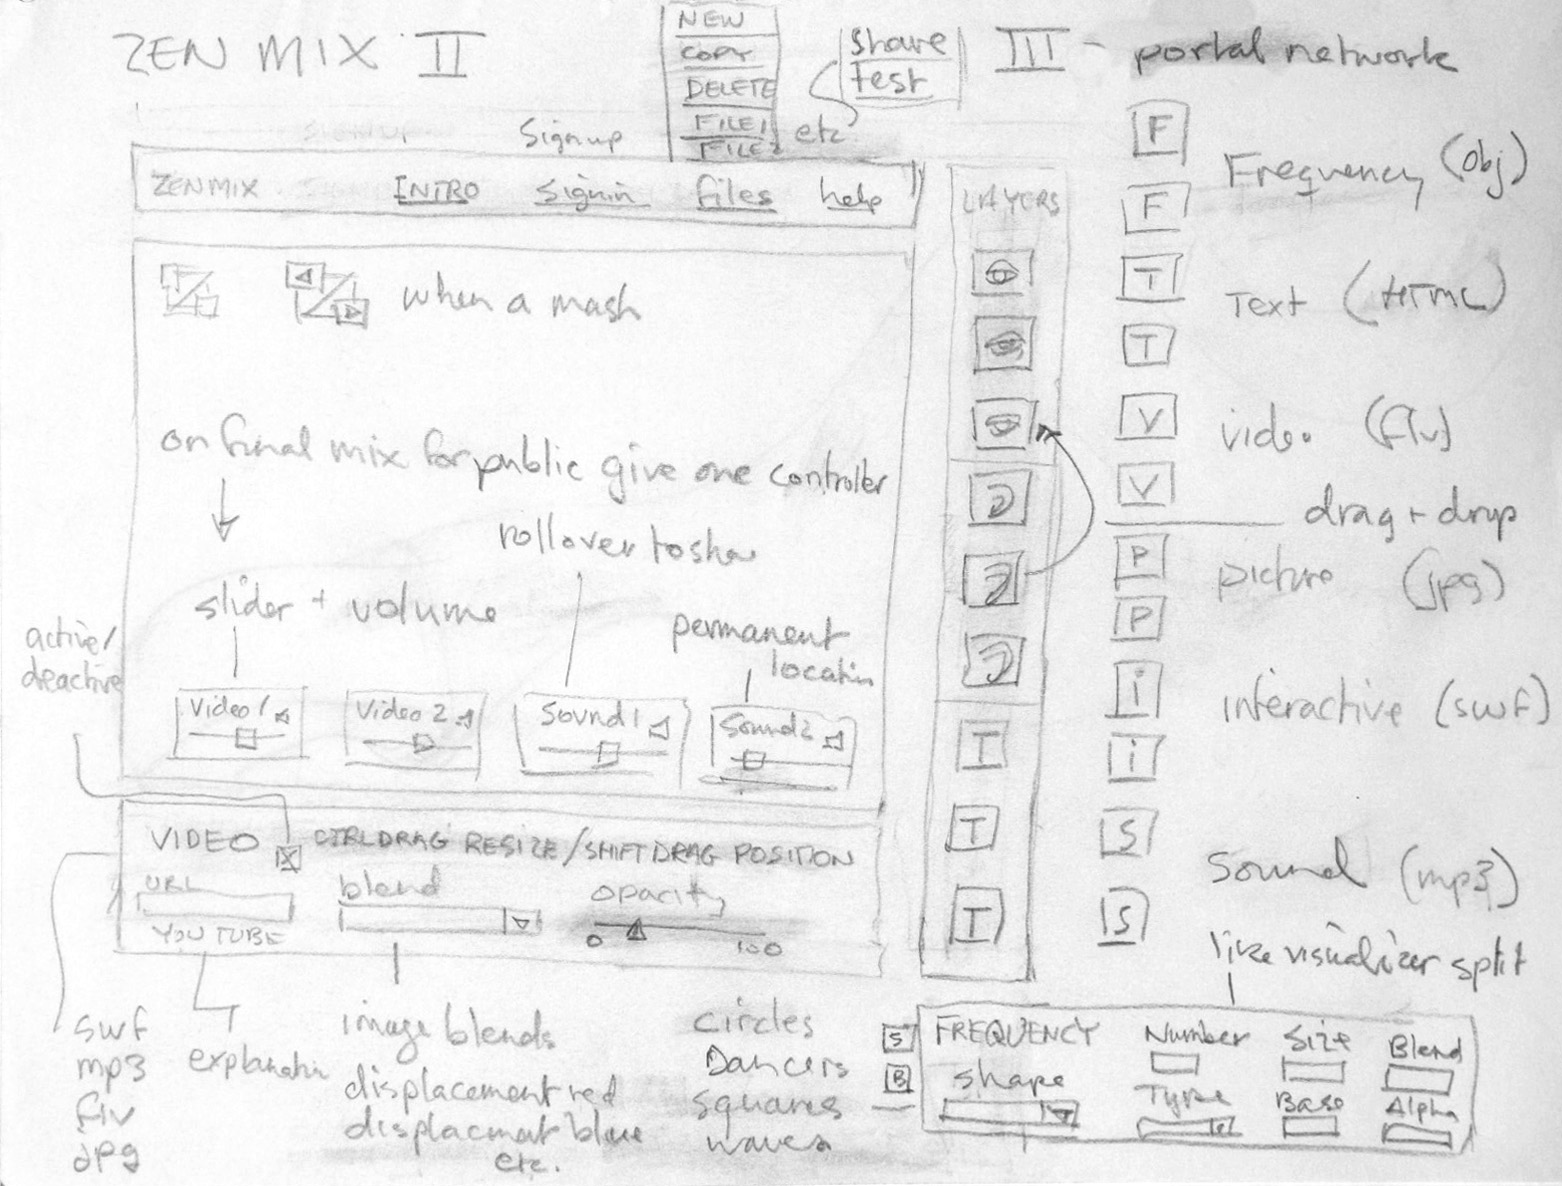 ZEN MIX II
NEW
COPY
DELETE
FILE 1
FILE 2
etc
Share
test
III - portal network
Signup
ZENMIX
INTRO
signin
files
help
LAYERS
when a mash
on final mix for public give one controler
slider + volume
rollover to show
permanent
location
active/
deactive
Video 1
Video 2
Sound 1
Sound 2
VIDEO
X
CTRLDRAG RESIZE / SHIFTDRAG POSITION
URL
YOUTUBE
blend
opacity
0
100
T
T
T
F
F
Frequency (obj)
T
T
Text (HTML)
V
V
video (flv)
drag + drop
P
P
picture (jpg)
i
i
interactive (swf)
S
S
Sound (mp3)
like visualizer split
swf
mp3
flv
jpg
explanation
image blends
displacement red
displacmat blue
etc.
circles
Dancers
squares
waves
S
B
FREQUENCY
shape
Number
Type
Size
Base
Blend
Alpha